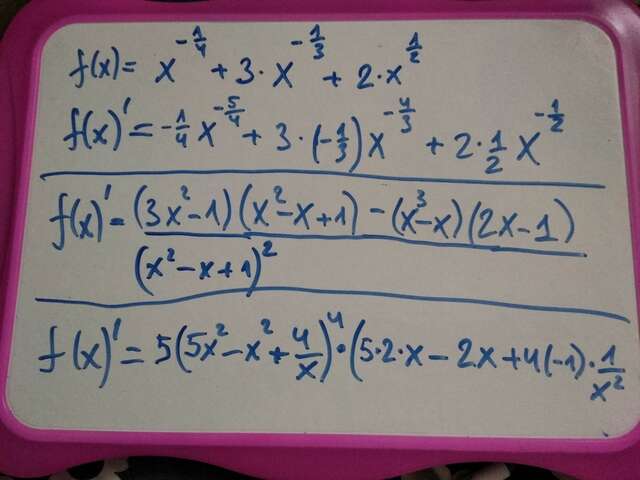 f(x) = x^{-\frac{1}{4}} + 3 · x^{-\frac{1}{3}} + 2 · x^{\frac{1}{2}}
f(x)' = -\frac{1}{4} x^{-\frac{5}{4}} + 3 · (-\frac{1}{3}) x^{-\frac{4}{3}} + 2 · \frac{1}{2} x^{-\frac{1}{2}}
f(x)' = \frac{(3x^2 - 1)(x^2 - x + 1) - (x^3 - x)(2x - 1)}{(x^2 - x + 1)^2}
f(x)' = 5(5x^2 - x^2 + \frac{4}{x})^4 · (5 · 2 · x - 2x + 4(-1) · \frac{1}{x^2}